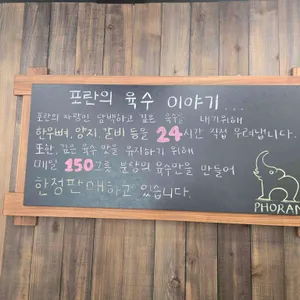 포란의 육수 이야기...
포란의 자랑인 담백하고 깊은 육수를 내기위해
한우뼈, 양지, 갈비 등을 24시간 직접 우려냅니다.
또한, 깊은 육수 맛을 유지하기 위해
매일 150그릇 분량의 육수만을 만들어
한정판매하고 있습니다.
PHORAN